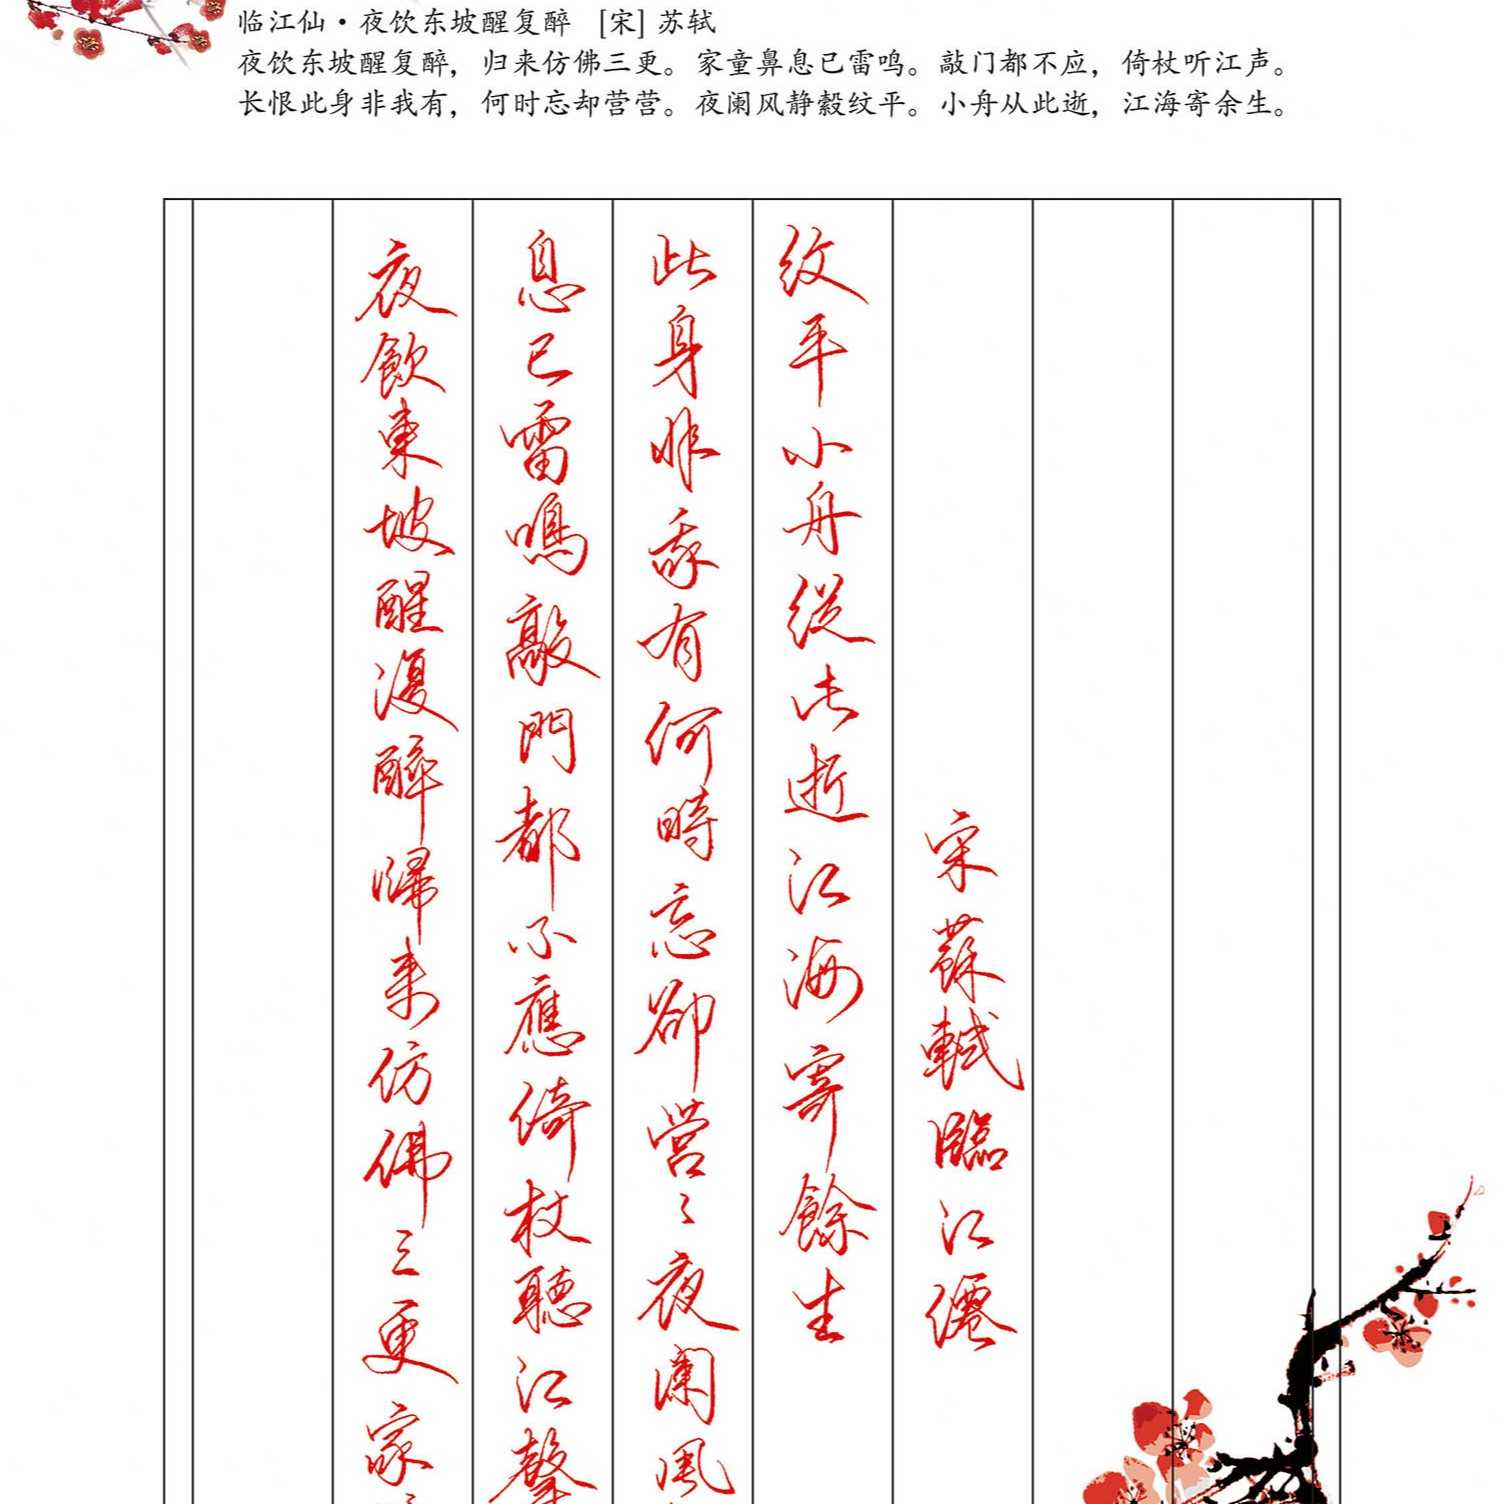 临江仙·夜饮东坡醒复醉 [宋] 苏轼
夜饮东坡醒复醉，归来仿佛三更。家童鼻息已雷鸣。敲门都不应，倚杖听江声。
长恨此身非我有，何时忘却营营。夜阑风静縠纹平。小舟从此逝，江海寄余生。
夜飲東坡醒復醉歸來仿佛三更家
息已雷鳴敲門都不應倚杖聽江聲
此身非我有何時忘卻營〻夜闌風
紋平小舟從此逝江海寄餘生
宋蘇軾臨江僊